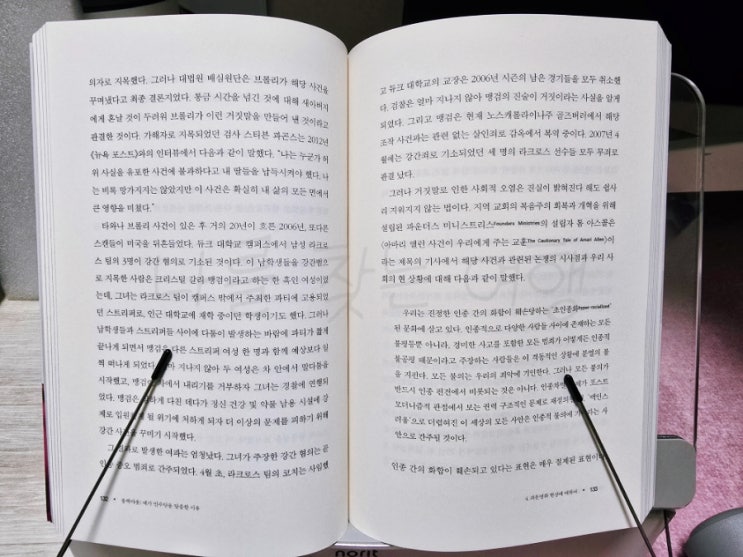 의자로 지목했다. 그러나 대법원 배심원단은 브롤리가 해당 사건을
꾸며냈다고 최종 결론지었다. 통금 시간을 넘긴 것에 대해 새아버지
에게 혼날 것이 두려워 브롤리가 이런 거짓말을 만들어 낸 것이라고
판결한 것이다. 가해자로 지목되었던 검사 스티븐 파곤스는 2012년
《뉴욕 포스트》와의 인터뷰에서 다음과 같이 말했다. “나는 누군가 허
위 사실을 유포한 사건에 불과하다고 내 딸들을 납득시켜야 했다. 나
는 비록 망가지지는 않았지만 이 사건은 확실히 내 삶의 모든 면에서
큰 영향을 미쳤다.”
타와나 브롤리 사건이 있은 후 거의 20년이 흐른 2006년, 또다른
스캔들이 미국을 뒤흔들었다. 듀크 대학교 캠퍼스에서 남성 라크로
스 팀의 3명이 강간 혐의로 기소된 것이다. 이 남학생들을 강간범으
로 지목한 사람은 크리스털 갈리 맹검이라고 하는 한 흑인 여성이었
는데, 그녀는 라크로스 팀이 캠퍼스 밖에서 주최한 파티에 고용되었
던 스트리퍼로, 인근 대학교에 재학 중이던 학생이기도 했다. 그러나
남학생들과 스트리퍼들 사이에 다툼이 발생하는 바람에 파티가 짧게
끝나게 되면서 맹검은 다른 스트리퍼 여성 한 명과 함께 예상보다 일
찍 떠나게 되었다. 지나지 않아 두 여성은 차 안에서 말다툼을
시작했고, 맹검이 차에서 내리기를 거부하자 그녀는 경찰에 연행되
었다. 맹검은 하게 다친 데다가 정신 건강 및 약물 남용 시설에 강
제로 입원 될 위기에 처하게 되자 더 이상의 문제를 피하기 위해
강간 사건을 꾸미기 시작했다.
그 결과로 발생한 여파는 엄청났다. 그녀가 주장한 강간 혐의는 곧
인종 증오 범죄로 간주되었다. 4월 초, 라크로스 팀의 코치는 사임했
132 • 블랙아웃: 내가 민주당을 탈출한 이유
고 듀크 대학교의 교장은 2006년 시즌의 남은 경기들을 모두 취소했
다. 검찰은 얼마 지나지 않아 맹검의 진술이 거짓이라는 사실을 알게
되었다. 그리고 맹검은 현재 노스캐롤라이나주 골즈버러에서 해당
조작 사건과는 관련 없는 살인죄로 감옥에서 복역 중이다. 2007년 4
월에는 강간죄로 기소되었던 세 명의 라크로스 선수들 모두 무죄로
판결 났다.
그러나 거짓말로 인한 사회적 오염은 진실이 밝혀진다 해도 쉽사
리 지워지지 않는 법이다. 지역 교회의 복음주의 회복과 개혁을 위해
설립된 파운더스 미니스트리스Founders Ministries의 설립자 톰 아스콜은
〈아마리 앨런 사건이 우리에게 주는 교훈The Cautionary Tale of Amari Allen〉이
라는 제목의 기사에서 해당 사건과 관련된 논쟁의 시사점과 우리 사
회의 현 상황에 대해 다음과 같이 말했다.
우리는 진정한 인종 간의 화합이 훼손당하는 ‘초인종화hyper-racialized’
된 문화에 살고 있다. 인종적으로 다양한 사람들 사이에 존재하는 모든
불평등뿐 아니라, 경미한 사고를 포함한 모든 범죄가 이렇게든 인종적
불공평 때문이라고 주장하는 사람들은 이 적동적인 상황에 분열의 불
을 지핀다. 모든 불의는 우리의 죄악에 기인한다. 그러나 모든 불의가
반드시 인종 편견에서 비롯되는 것은 아니다. 인종차별 가 포스트
모더니즘적 관점에서 보는 권력 구조적인 문제로 재정의 ‘백인스
러움’으로 더럽혀진 이 세상의 모든 사안은 인종적 불의에 기 라는 사
안으로 간주될 것이다.
인종 간의 화합이 훼손되고 있다는 표현은 매우 절제된 표현이
133
norit